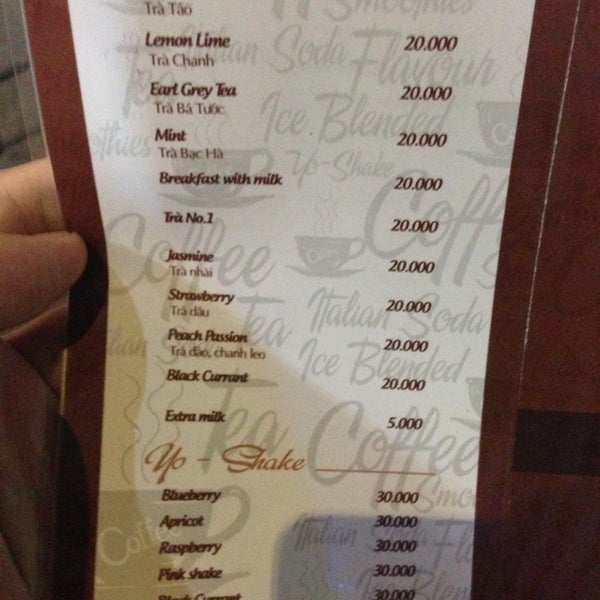 Trà Táo
Lemon Lime 20.000
Trà Chanh
Earl Grey Tea 20.000
Trà Bá Tước
Mint 20.000
Trà Bạc Hà
Breakfast with milk 20.000
Trà No.1 20.000
Jasmine 20.000
Trà nhài
Strawberry 20.000
Trà dâu
Peach Passion 20.000
Trà đào, chanh leo
Black Currant 20.000
Extra milk 5.000
Yo - Shake
Blueberry 30.000
Apricot 30.000
Raspberry 30.000
Pink shake 30.000
Black Currant 30.000
Smoothies
Italian Soda
Flavour
Tea
Smoothies
Ice Blended
Yo-Shake
Coffee
Coffee
Tea
Italian Soda
Ice Blended
Tea
Coffee